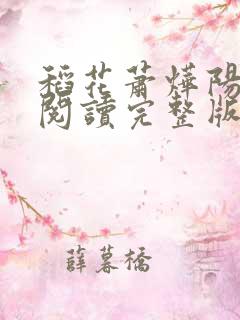 稻花蕭燁陽
閱讀完整版
薛慕橋